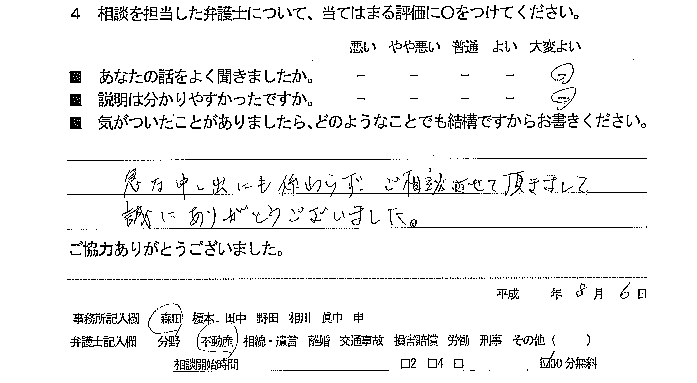 4 相談を担当した弁護士について、当てはまる評価に〇をつけてください。
悪い やや悪い 普通 よい 大変よい
■ あなたの話をよく聞きましたか。 － － － － －
■ 説明は分かりやすかったですか。 － － － － －
■ 気がついたことがありましたら、どのようなことでも結構ですからお書きください。
急な申し出にも係わらず ご相談させて頂きまして
誠にありがとうございました。
ご協力ありがとうございました。
平成 年 8 月 6 日
事務所記入欄 森田 榎本 田中 野田 相川 眞中 申
弁護士記入欄 分野 不動産 相続・遺言 離婚 交通事故 損害賠償 労働 刑事 その他（ ）
相談開始時間 □2 □4 □ 60分無料